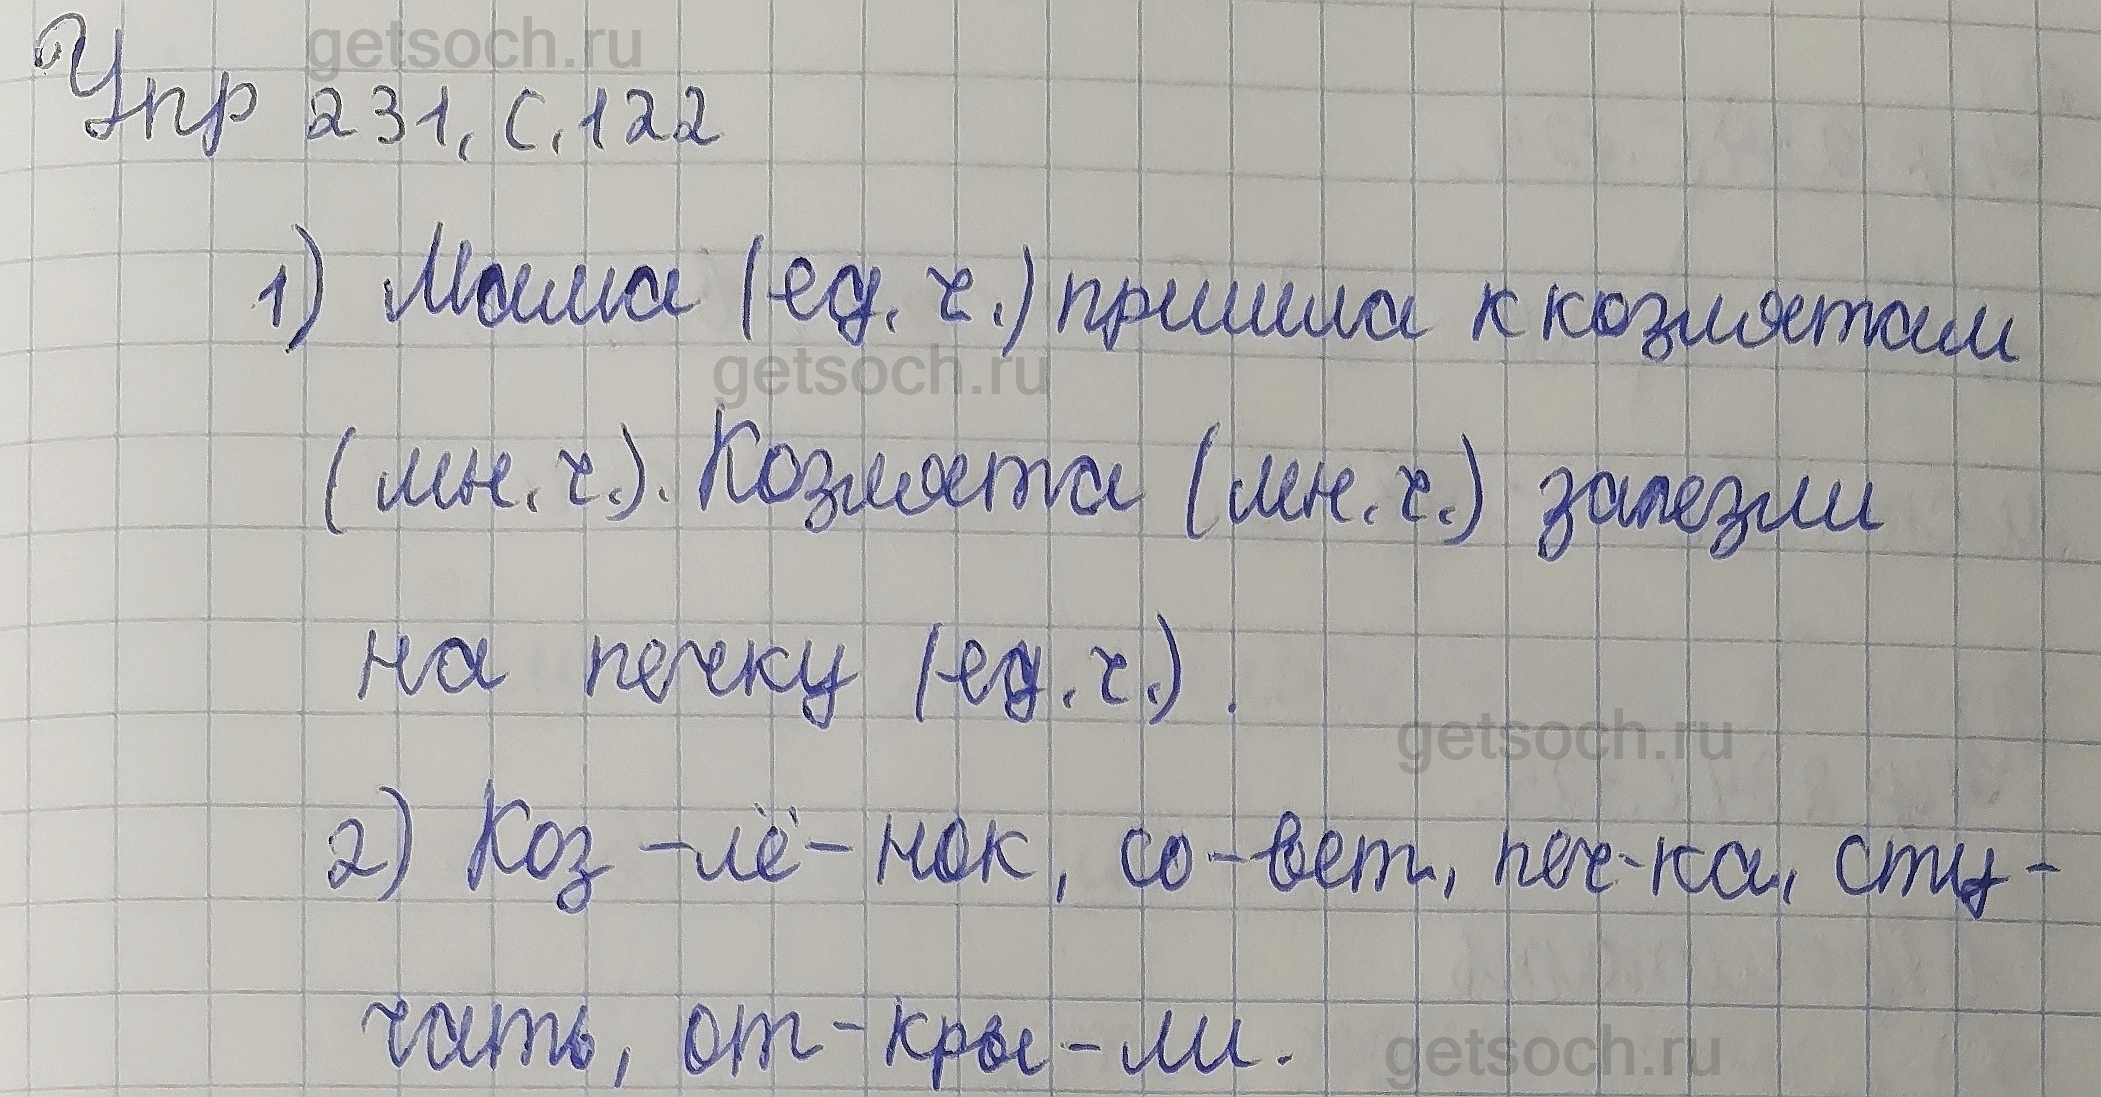 getsoch.ru
Упр 231, с. 122
1) Мама (ед. ч.) пришла к козлятам
getsoch.ru
(мн. ч.). Козлята (мн. ч.) залезли
на печку (ед. ч.).
getsoch.ru
2) Коз-лё-нок, со-вет, печ-ка, сту-
чать, от-кры-ли.
getsoch.ru